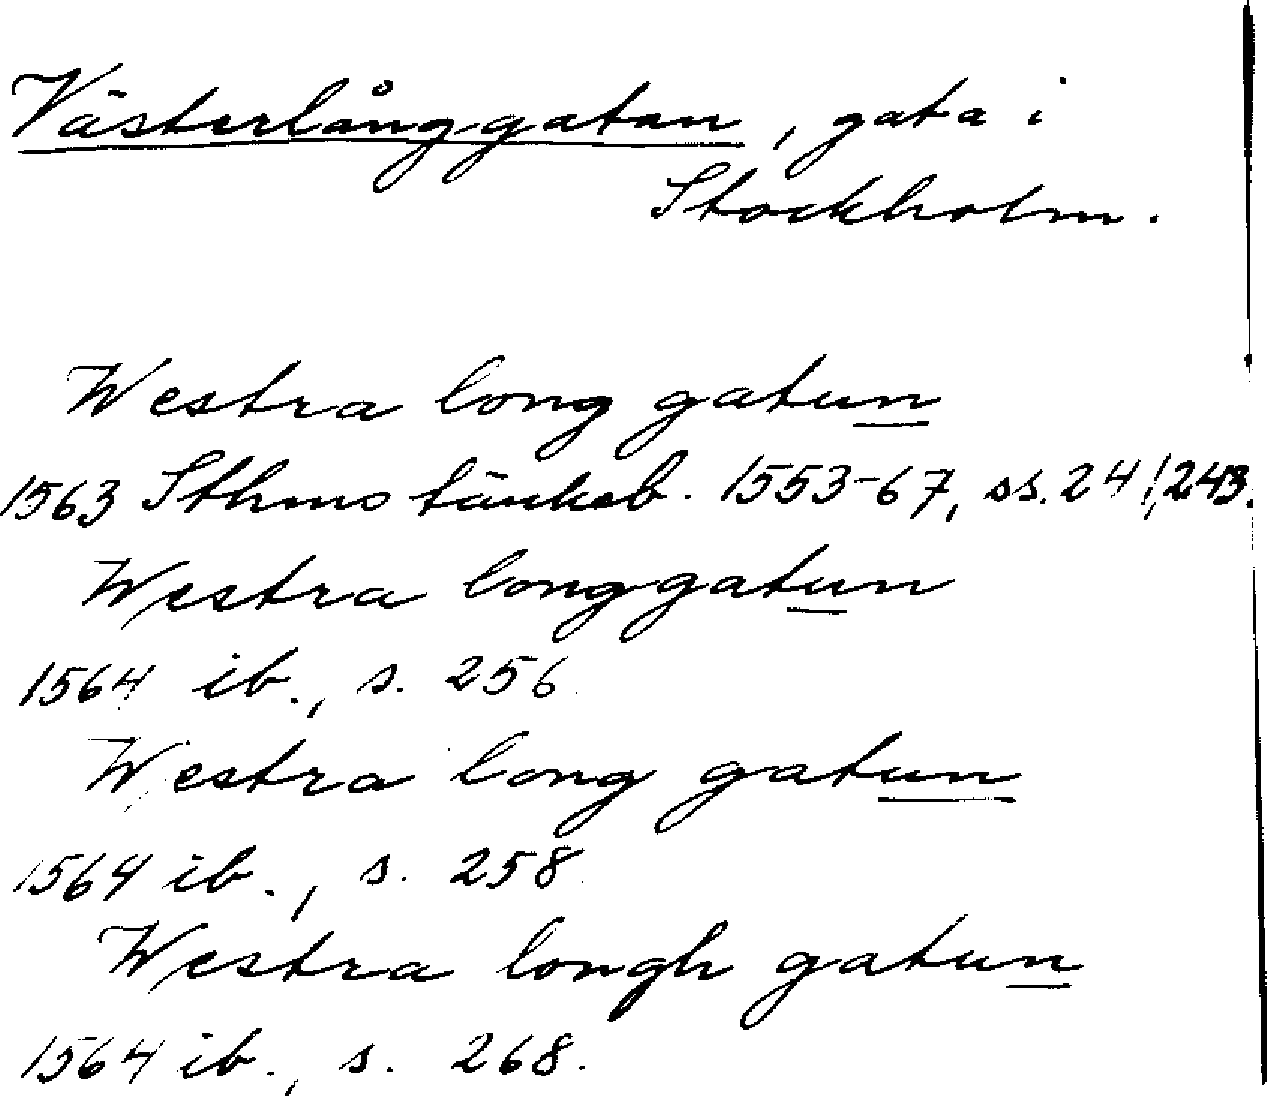 Västerlånggatan, gata i
Stockholm.
Westra long gatun
1563 Sthms tänkeb. 1553-67, ss. 241, 243.
Westra longgatun
1564 ib., s. 256
Westra long gatun
1564 ib., s. 258
Westra longh gatun
1564 ib., s. 268.